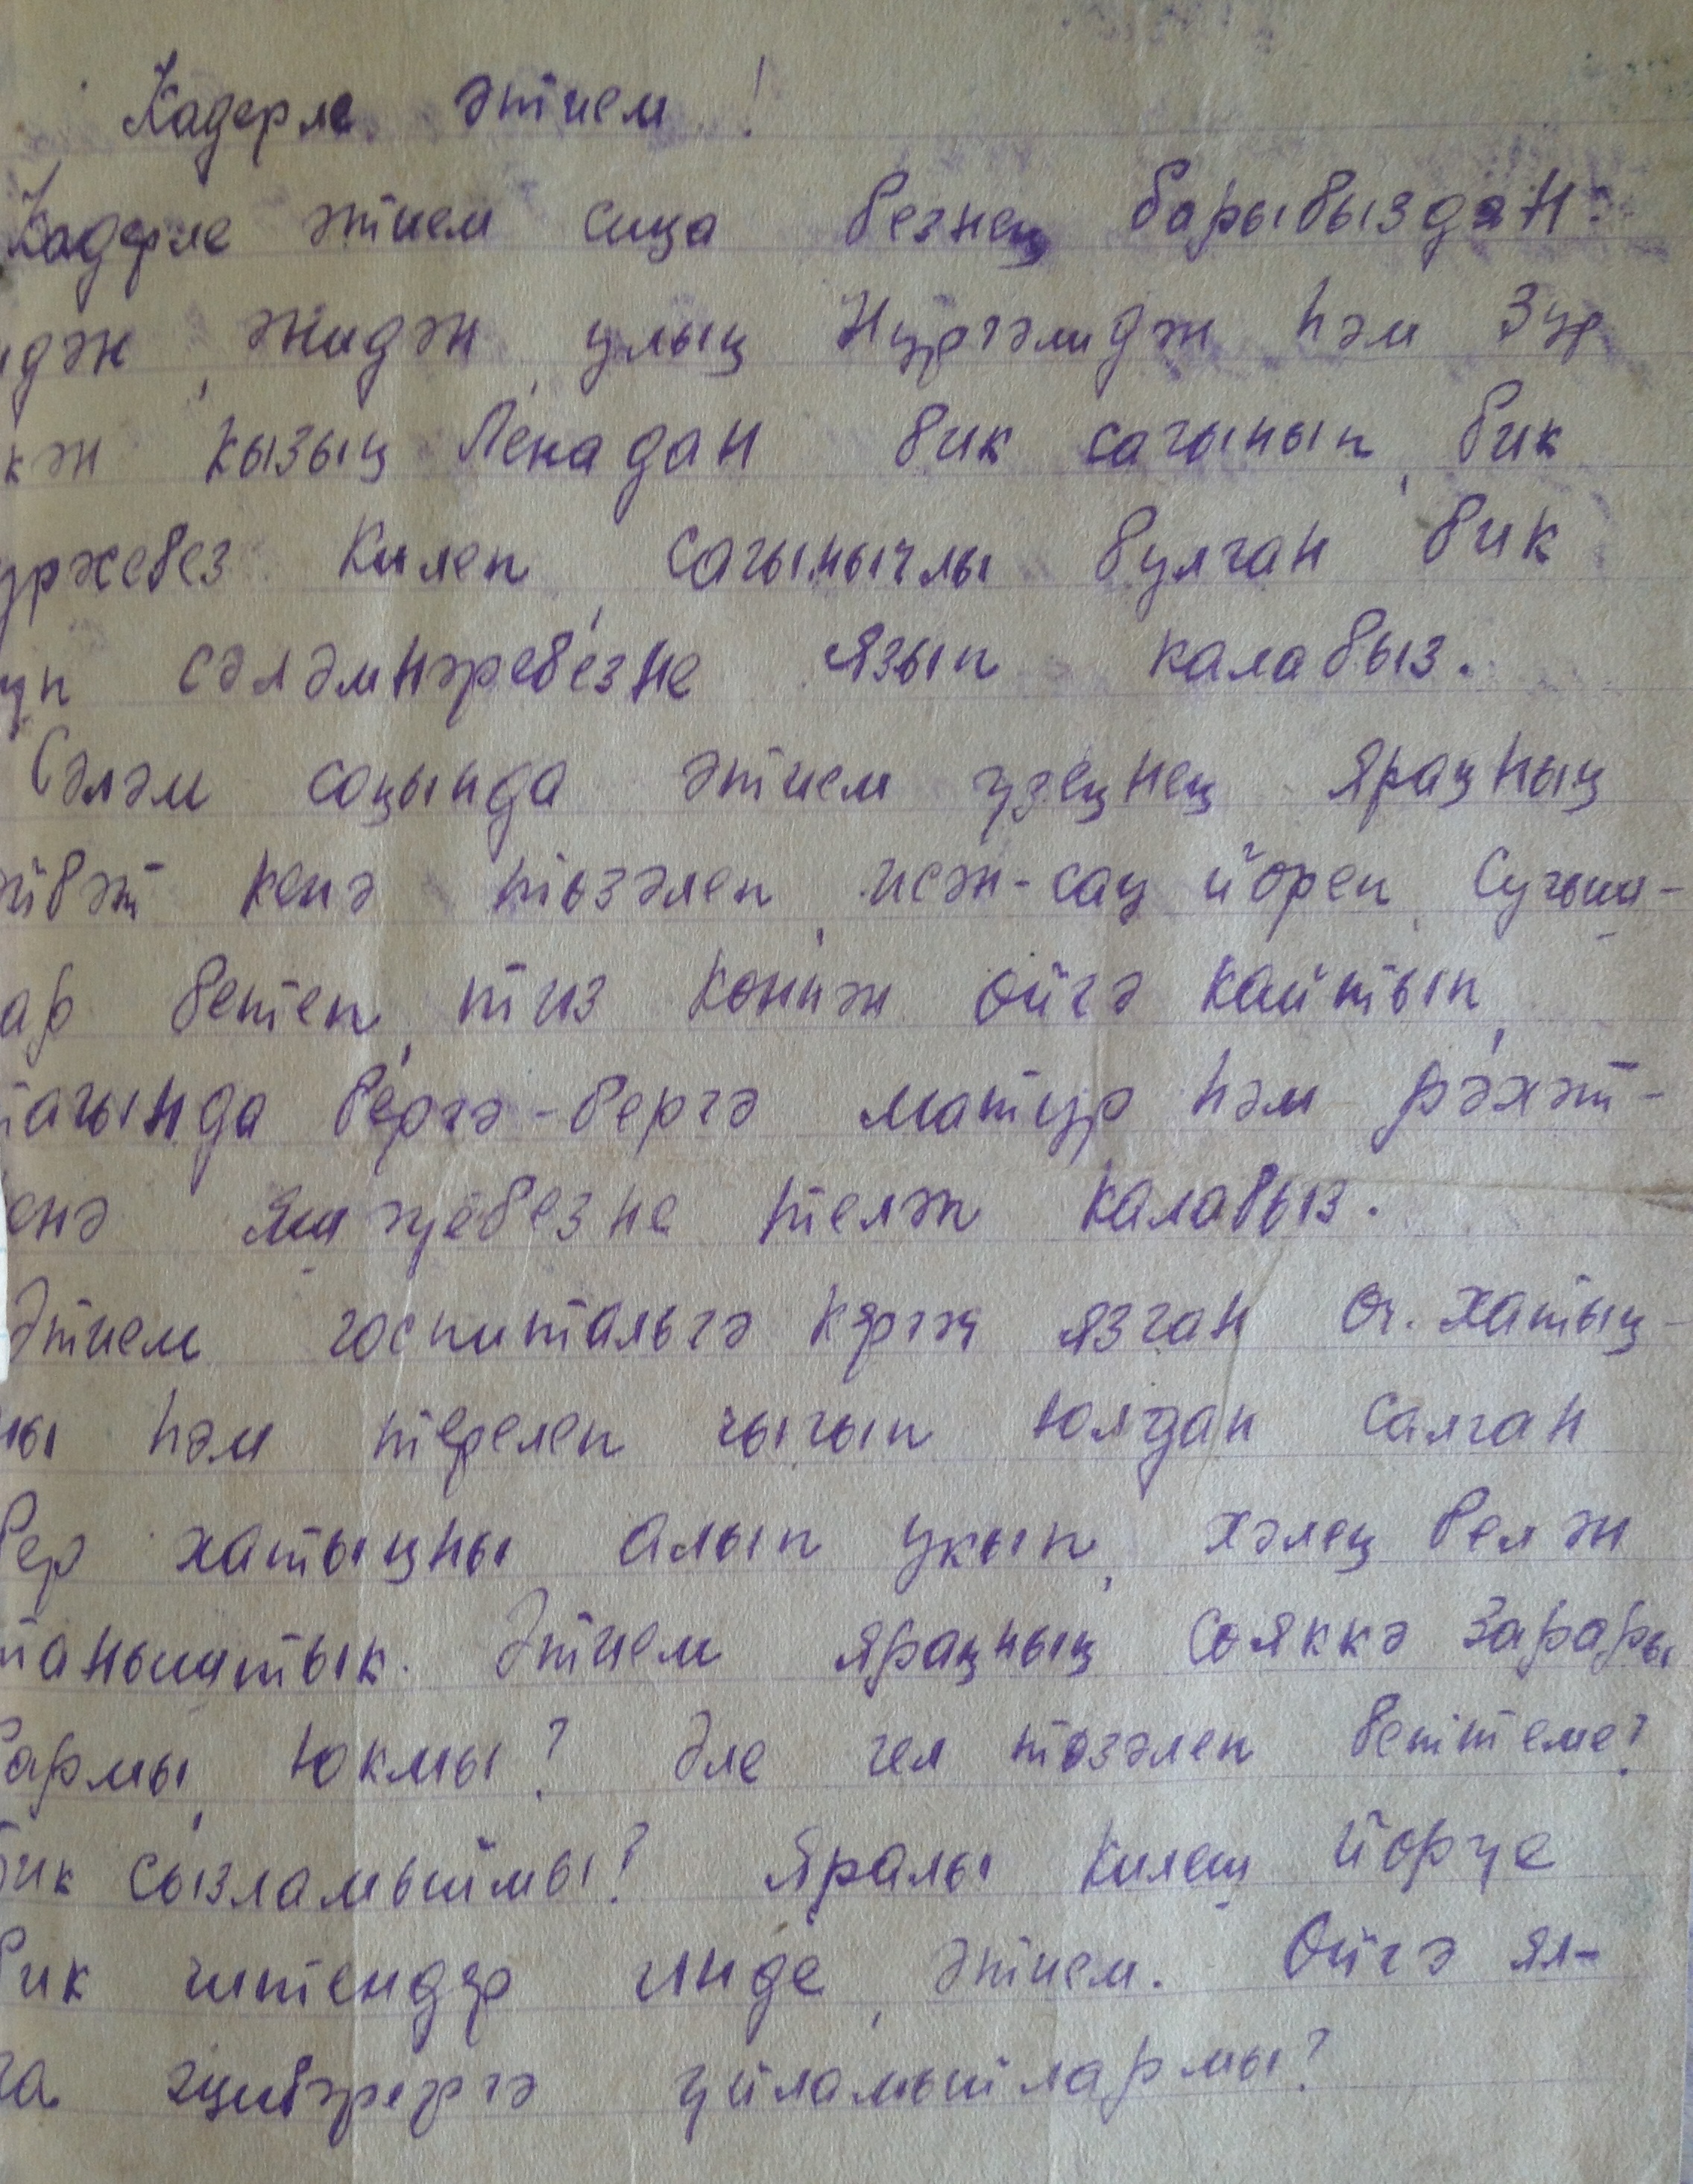 Кадерле әтием!
Кадерле әтием сиңа безнең барыбыздан:
идән, әнидән, улың Нургалидән һәм Зур
кән кызың Ленадан бик сагынып, бик
үрәсебез килеп, сагынычлы булган бик
үп сәләмнәребезне язып калабыз.
Сәләм соңында әтием үзеңнең яраңның
әйбәт кенә төзәлеп, исән-сау йөреп, Сугыш-
ар бетеп, тиз көннән өйгә кайтып,
тагында бергә-бергә матур һәм рәхәт-
енә яшәүебезне теләп калабыз.
Әтием госпитальгә кергәч язган өч. хатың-
ны һәм терелеп чыгып юлдан салган
бер хатыңны алып укып, хәлең белән
таныштык. Әтием яраңның сөяккә зарары
бармы, юкмы? Әле гел төзәлеп беттеме?
бик сызламыймы? Яралы килеш йөрүе
бик читендер инде, әтием. Өйгә ял-
га җибәрергә уйламыйлармы?